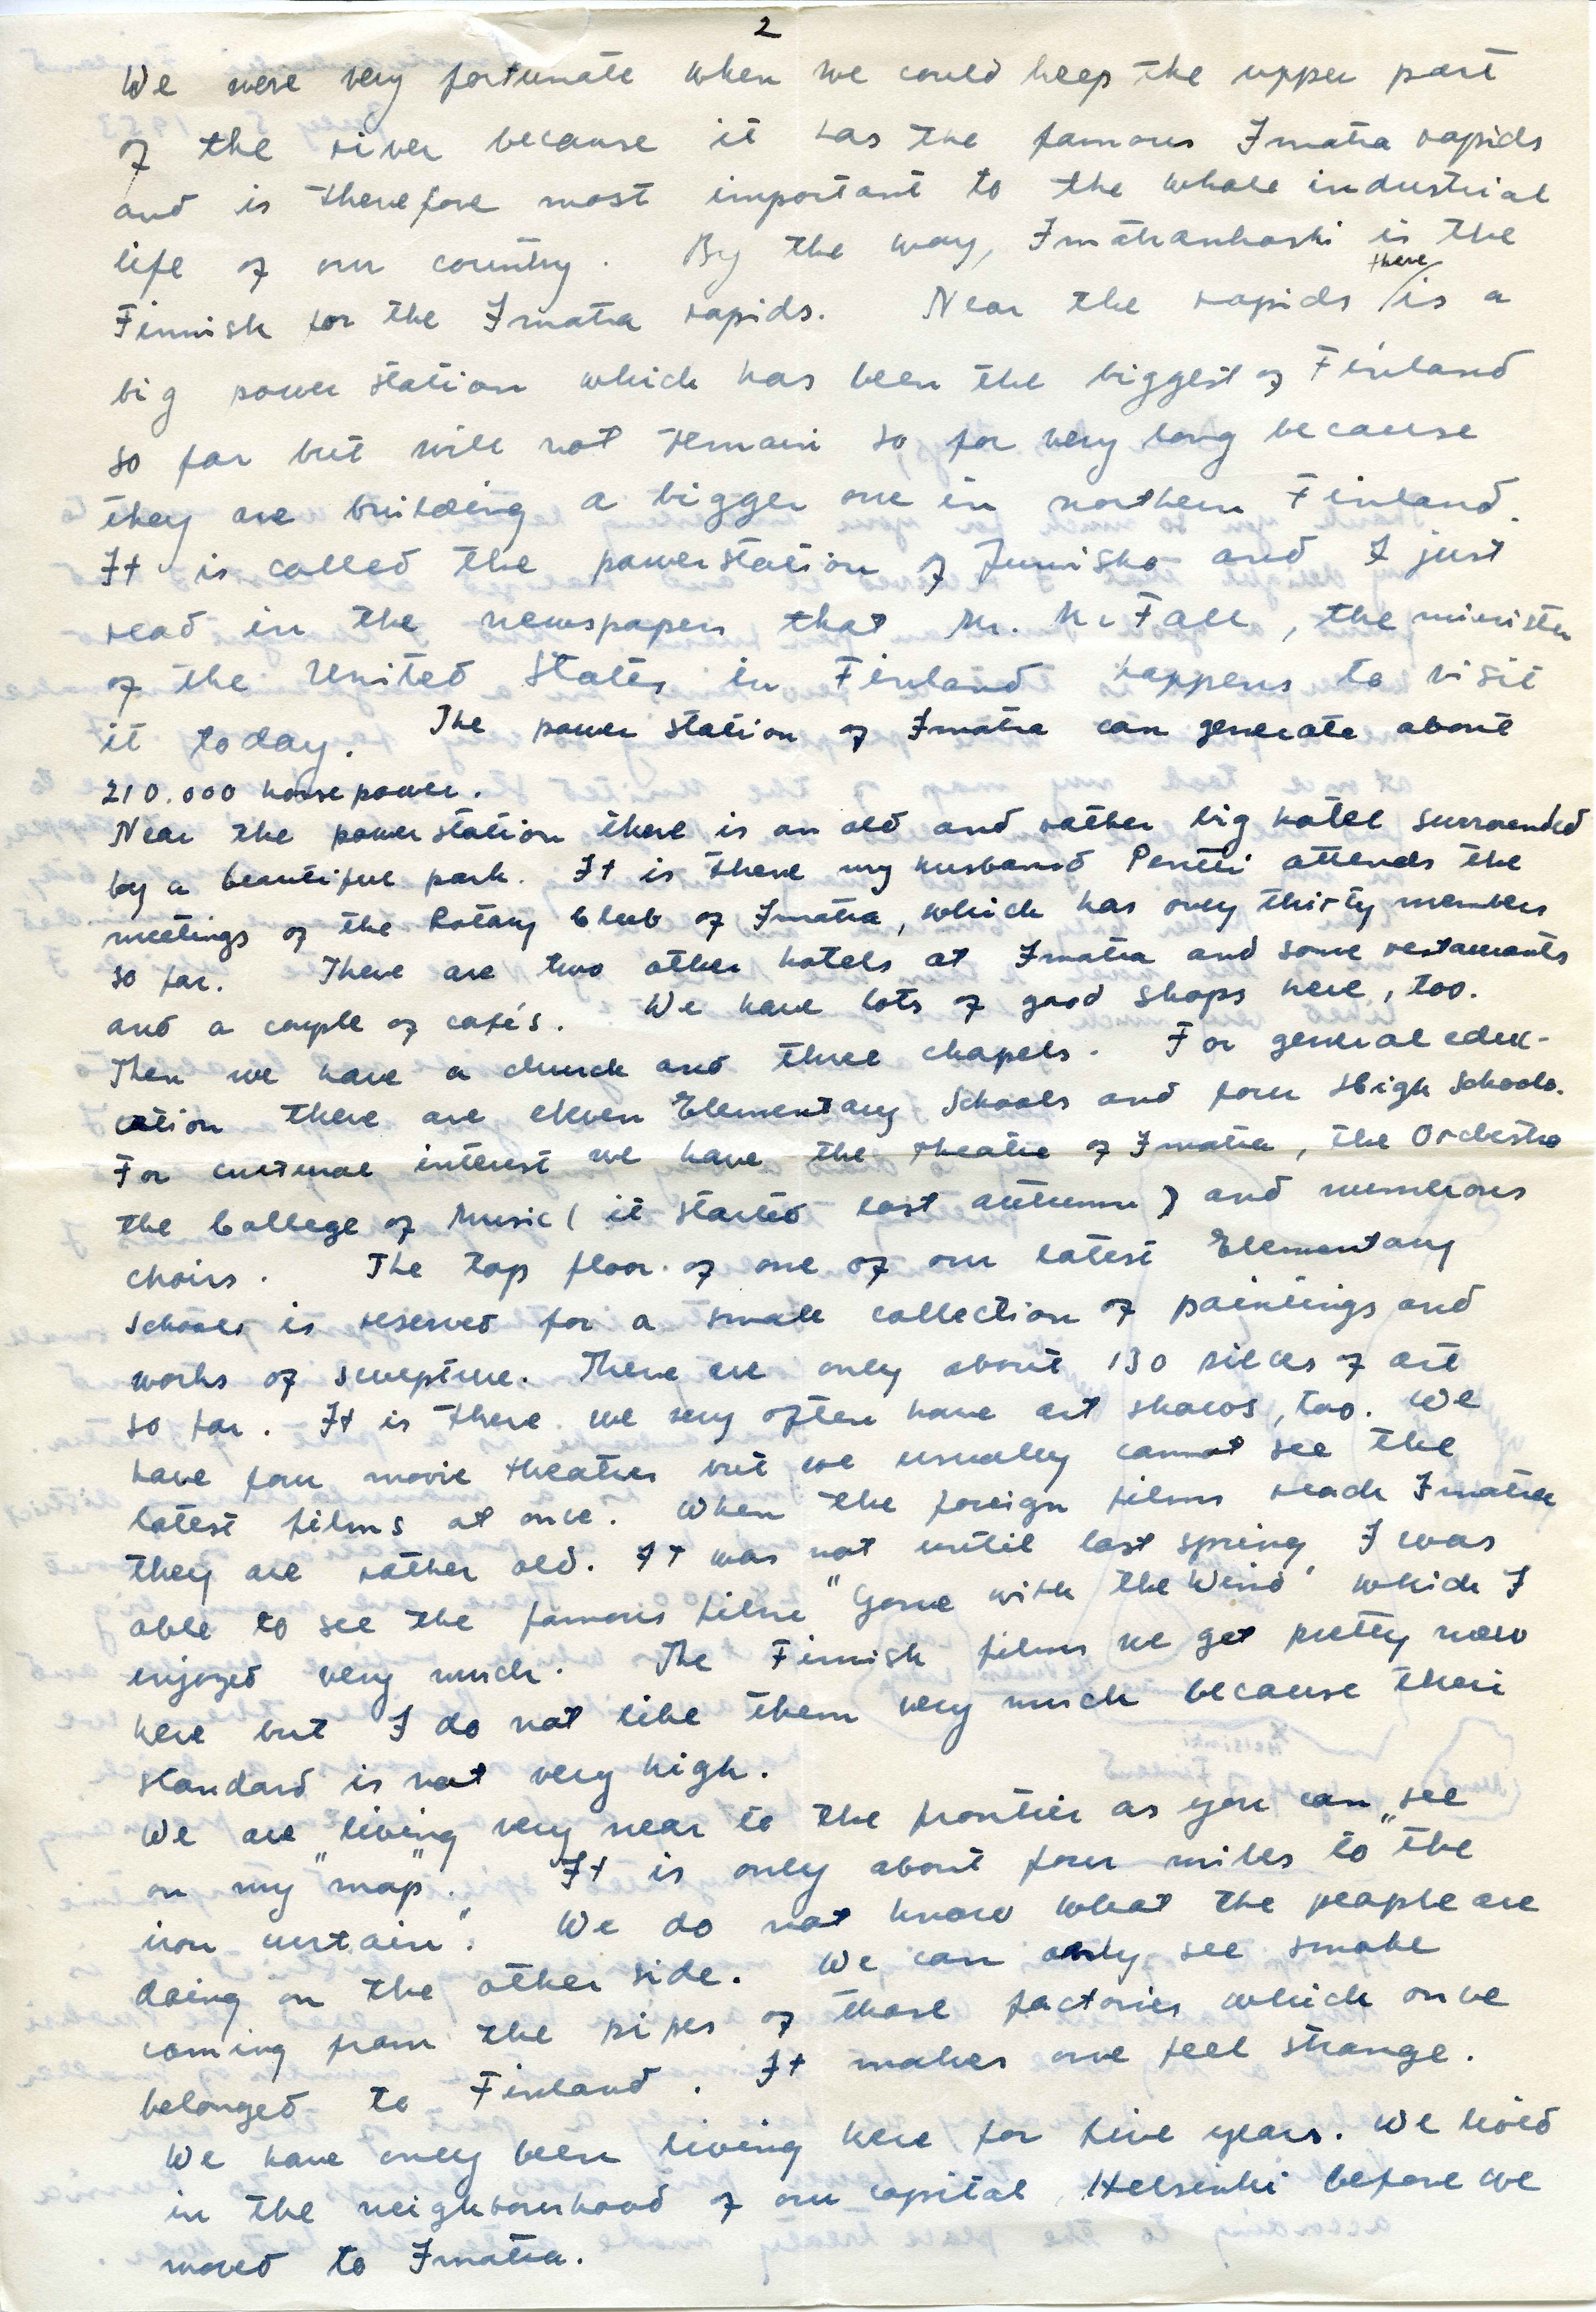 2
We were very fortunate when we could keep the upper part
of the river because it has the famous Imatra rapids
and is therefore most important to the whole industrial
life of our country. By the way, Imatrankoski is the
Finnish for the Imatra rapids. Near the rapids there is a
big power station which has been the biggest of Finland
so far but will not remain so for very long because
they are building a bigger one in northern Finland.
It is called the powerstation of Jumisko and I just
read in the newspapers that Mr. McFall, the minister
of the United States in Finland happens to visit
it today. The power station of Imatra can generate about
210.000 horsepower.
Near the powerstation there is an old and rather big hotel surrounded
by a beautiful park. It is there my husband Pentti attends the
meetings of the Rotary Club of Imatra, which has only thirty members
so far. There are two other hotels at Imatra and some restaurants
and a couple of cafés. We have lots of good shops here, too.
Then we have a church and three chapels. For general edu-
cation there are eleven Elementary Schools and four High Schools.
For cultural interest we have the theatre of Imatra, the Orchestra
the College of Music (it started last autumn) and numerous
choirs. The top floor of one of our latest Elementary
Schools is reserved for a small collection of paintings and
works of sculpture. There are only about 130 pieces of art
so far. It is there we very often have art shows, too. We
have four movie theatres but we usually cannot see the
latest films at once. When the foreign films reach Imatra
they are rather old. It was not until last spring I was
able to see the famous film "Gone with the Wind" which I
enjoyed very much. The Finnish films we get pretty new
here but I do not like them very much because their
standard is not very high.
We are living very near to the frontier as you can see
on my "map". It is only about four miles to "the
iron curtain". We do not know what the people are
doing on the other side. We can only see smoke
coming from the pipes of those factories which once
belonged to Finland. It makes one feel strange.
We have only been living here for five years. We lived
in the neighbourhood of our capital, Helsinki before we
moved to Imatra.